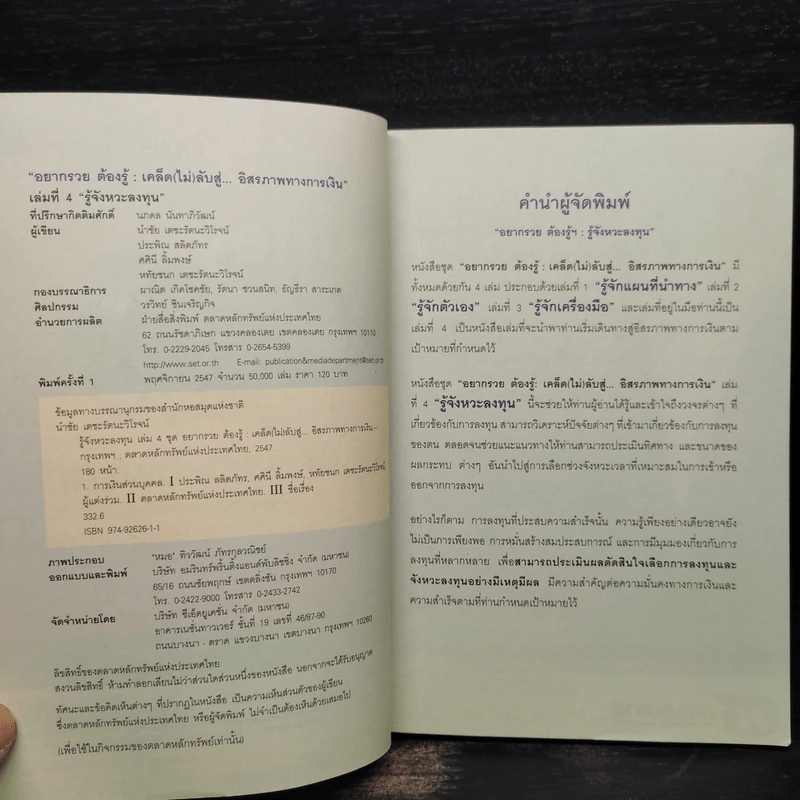 "อยากรวย ต้องรู้ : เคล็ด(ไม่)ลับสู่... อิสรภาพทางการเงิน"
เล่มที่ 4 "รู้จังหวะลงทุน"
ที่ปรึกษากิตติมศักดิ์ นภดล นันทาภิวัฒน์
ผู้เขียน นำชัย เตชะรัตนะวิโรจน์
ประพิณ ลลิตภัทร
ศศินี ลิ้มพงษ์
หทัยชนก เตชะรัตนะวิโรจน์
กองบรรณาธิการ ผาณิต เกิดโชคชัย, รัตนา ชวนสนิท, ธัญธีรา สาระเกต
ศิลปกรรม วรวิทย์ ชินเจริญกิจ
อำนวยการผลิต ฝ่ายสื่อสิ่งพิมพ์ ตลาดหลักทรัพย์แห่งประเทศไทย
62 ถนนรัชดาภิเษก แขวงคลองเตย เขตคลองเตย กรุงเทพฯ 10110
โทร. 0-2229-2045 โทรสาร 0-2654-5399
http://www.set.or.th E-mail: publication&mediadepartment@set.or.th
พิมพ์ครั้งที่ 1 พฤศจิกายน 2547 จำนวน 50,000 เล่ม ราคา 120 บาท
ข้อมูลทางบรรณานุกรมของสำนักหอสมุดแห่งชาติ
นำชัย เตชะรัตนะวิโรจน์
รู้จังหวะลงทุน เล่ม 4 ชุด อยากรวย ต้องรู้ : เคล็ด(ไม่)ลับสู่... อิสรภาพทางการเงิน.-
กรุงเทพฯ : ตลาดหลักทรัพย์แห่งประเทศไทย, 2547.
180 หน้า.
1. การเงินส่วนบุคคล. I ประพิณ ลลิตภัทร, ศศินี ลิ้มพงษ์, หทัยชนก เตชะรัตนะวิโรจน์
ผู้แต่งร่วม. II ตลาดหลักทรัพย์แห่งประเทศไทย. III ชื่อเรื่อง
332.6
ISBN 974-92626-1-1
ภาพประกอบ "หมอ" ทิววัฒน์ ภัทรกุลวณิชย์
ออกแบบและพิมพ์ บริษัท อมรินทร์พริ้นติ้งแอนด์พับลิชชิ่ง จำกัด (มหาชน)
65/16 ถนนชัยพฤกษ์ เขตตลิ่งชัน กรุงเทพฯ 10170
โทร. 0-2422-9000 โทรสาร 0-2433-2742
จัดจำหน่ายโดย บริษัท ซีเอ็ดยูเคชั่น จำกัด (มหาชน)
อาคารเนชั่นทาวเวอร์ ชั้นที่ 19 เลขที่ 46/87-90
ถนนบางนา - ตราด แขวงบางนา เขตบางนา กรุงเทพฯ 10260
ลิขสิทธิ์ของตลาดหลักทรัพย์แห่งประเทศไทย
สงวนลิขสิทธิ์ ห้ามทำลอกเลียนไม่ว่าส่วนใดส่วนหนึ่งของหนังสือ นอกจากจะได้รับอนุญาต
ทัศนะและข้อคิดเห็นต่างๆ ที่ปรากฏในหนังสือ เป็นความเห็นส่วนตัวของผู้เขียน
ซึ่งตลาดหลักทรัพย์แห่งประเทศไทย หรือผู้จัดพิมพ์ ไม่จำเป็นต้องเห็นด้วยเสมอไป
(เพื่อใช้ในกิจกรรมของตลาดหลักทรัพย์เท่านั้น)
คำนำผู้จัดพิมพ์
"อยากรวย ต้องรู้ฯ : รู้จังหวะลงทุน"
หนังสือชุด "อยากรวย ต้องรู้ : เคล็ด(ไม่)ลับสู่... อิสรภาพทางการเงิน" มี
ทั้งหมดด้วยกัน 4 เล่ม ประกอบด้วยเล่มที่ 1 "รู้จักแผนที่นำทาง" เล่มที่ 2
"รู้จักตัวเอง" เล่มที่ 3 "รู้จักเครื่องมือ" และเล่มที่อยู่ในมือท่านนี้เป็น
เล่มที่ 4 เป็นหนังสือเล่มที่จะนำพาท่านเริ่มเดินทางสู่อิสรภาพทางการเงินตาม
เป้าหมายที่กำหนดไว้
หนังสือชุด "อยากรวย ต้องรู้: เคล็ด(ไม่)ลับสู่... อิสรภาพทางการเงิน" เล่ม
ที่ 4 "รู้จังหวะลงทุน" นี้จะช่วยให้ท่านผู้อ่านได้รู้และเข้าใจถึงวงจรต่างๆ ที่
เกี่ยวข้องกับการลงทุน สามารถวิเคราะห์ปัจจัยต่างๆ ที่เข้ามาเกี่ยวข้องกับการลงทุน
ของตน ตลอดจนช่วยแนะแนวทางให้ท่านสามารถประเมินทิศทาง และขนาดของ
ผลกระทบ ต่างๆ อันนำไปสู่การเลือกช่วงจังหวะเวลาที่เหมาะสมในการเข้าหรือ
ออกจากการลงทุน
อย่างไรก็ตาม การลงทุนที่ประสบความสำเร็จนั้น ความรู้เพียงอย่างเดียวอาจยัง
ไม่เป็นการเพียงพอ การหมั่นสร้างสมประสบการณ์ และการมีมุมมองเกี่ยวกับการ
ลงทุนที่หลากหลาย เพื่อสามารถประเมินผลตัดสินใจเลือกการลงทุนและ
จังหวะลงทุนอย่างมีเหตุมีผล มีความสำคัญต่อความมั่นคงทางการเงินและ
ความสำเร็จตามที่ท่านกำหนดเป้าหมายไว้